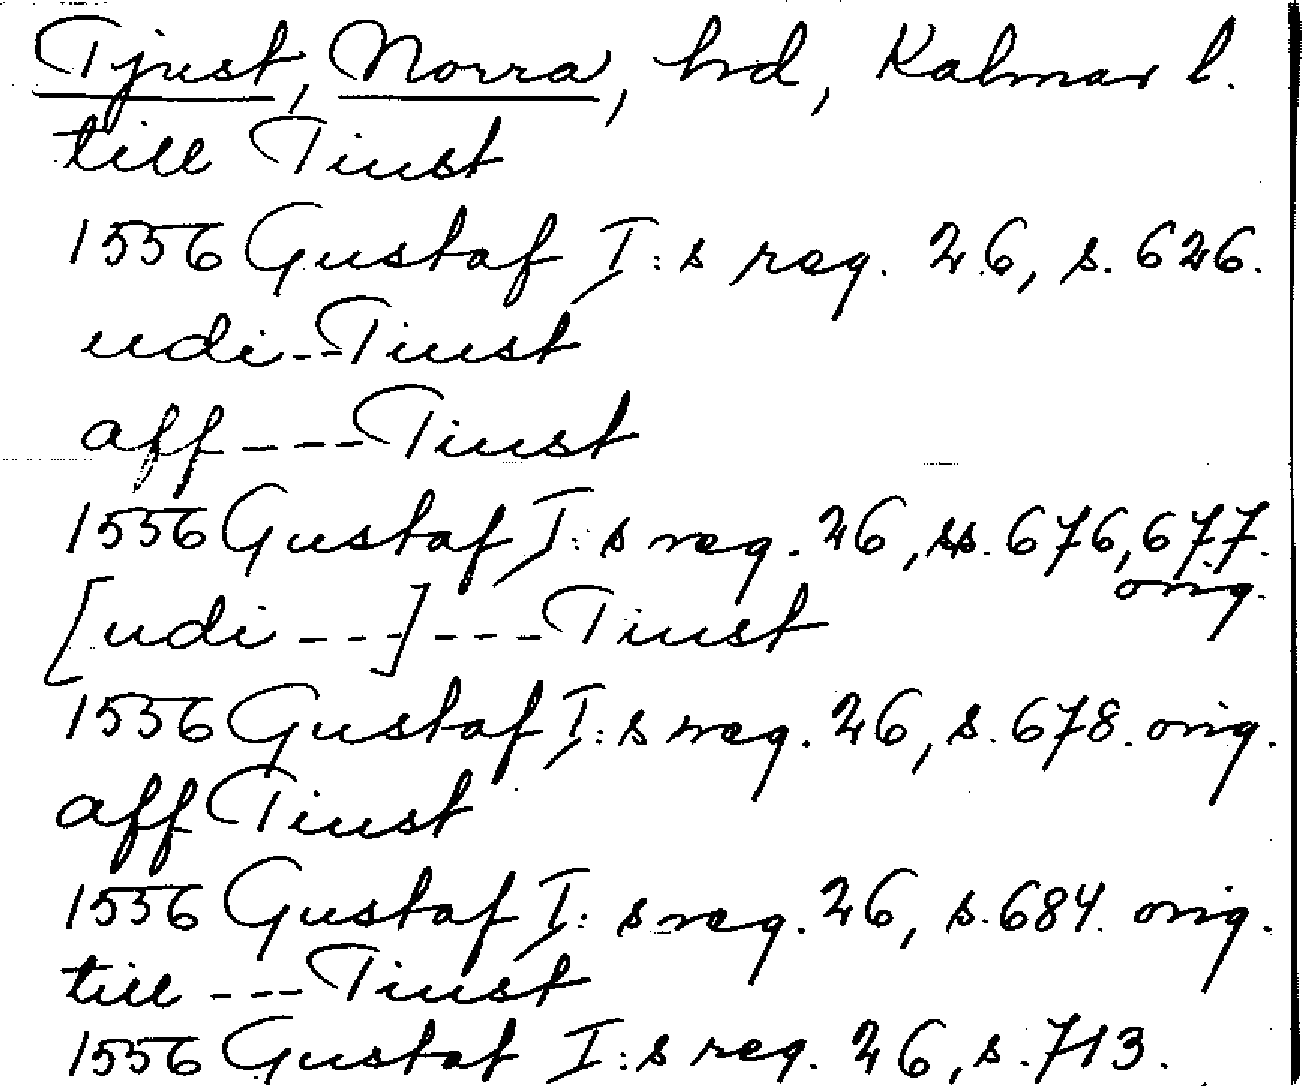 Tjust, Norra, hd, Kalmar l.
till Tiust
1556 Gustaf I:s reg. 26, s. 626.
udi --Tiust
aff --- Tiust
1556 Gustaf I:s reg. 26, ss. 676, 677.
orig.
[udi ---] --- Tiust
1556 Gustaf I:s reg. 26, s. 678. orig.
aff Tiust
1556 Gustaf I:s reg. 26, s. 684. orig.
till --- Tiust
1556 Gustaf I:s reg. 26, s. 713.